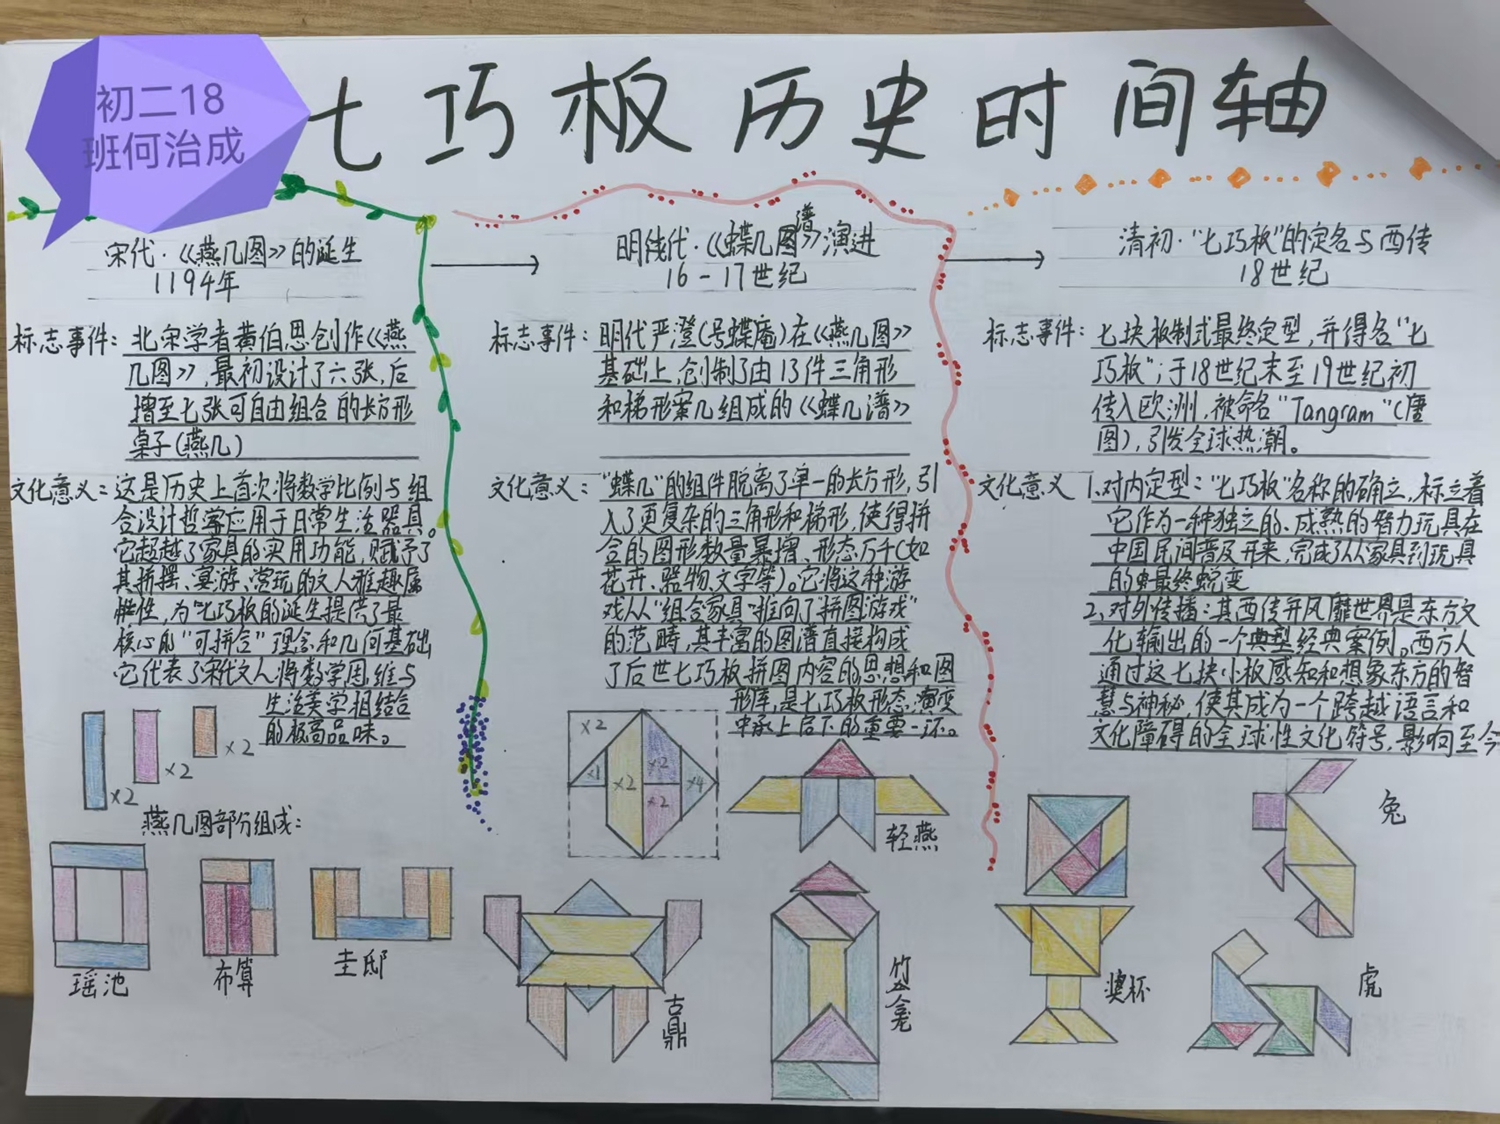 初二18
班何治成
七巧板历史时间轴
宋代·《燕几图》的诞生
1194年
标志事件：北宋学者黄伯思创作《燕
几图》，最初设计了六张，后
增至七张可自由组合的长方形
桌子(燕几)
文化意义：这是历史上首次将数学比例与组
合设计哲学应用于日常生活器具。
它超越了家具的实用功能，赋予了
其拼摆、宴游、赏玩的文人雅趣属
性，为“七巧板的诞生提供了最
核心的“可拼合”理念和几何基础
它代表了宋代文人将数学思维与
生活美学相结合
的极高品味。
×2
×2
×2
燕几图部分组成：
瑶池
布算
圭邸
明代·《蝶几图谱》演进
16-17世纪
标志事件：明代严澄(号蝶庵)在《燕几图》
基础上，创制了由13件三角形
和梯形案几组成的《蝶几谱》
文化意义：“蝶几”的组件脱离了单一的长方形，引
入了更复杂的三角形和梯形，使得拼
合的图形数量暴增、形态万千(如
花卉、器物、文字等)。它将这种游
戏从“组合家具”推向了“拼图游戏”
的范畴，其丰富的图谱直接构成
了后世七巧板拼图内容的思想和图
形库，是七巧板形态演变
中承上启下的重要一环。
×2
×1
×2
×2
×4
×2
轻燕
古鼎
竺龛
清初·“七巧板”的定名与西传
18世纪
标志事件：七块板制式最终定型，并得名“七
巧板”；于18世纪末至19世纪初
传入欧洲，被命名“Tangram”(唐
图)，引发全球热潮。
文化意义 1.对内定型：“七巧板”名称的确立，标立着
它作为一种独立的、成熟的智力玩具在
中国民间普及开来，完成了从家具到玩具
的最终蜕变
2、对外传播：其西传并风靡世界是东方文
化输出的一个典型经典案例。西方人
通过这七块小板感知和想象东方的智
慧与神秘，使其成为一个跨越语言和
文化障碍的全球性文化符号，影响至今
兔
奖杯
虎